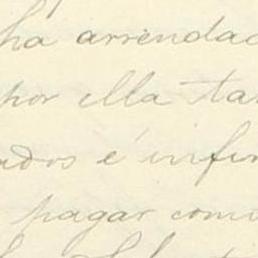 ha arrendad
por ella tan
ados é infor
pagar como